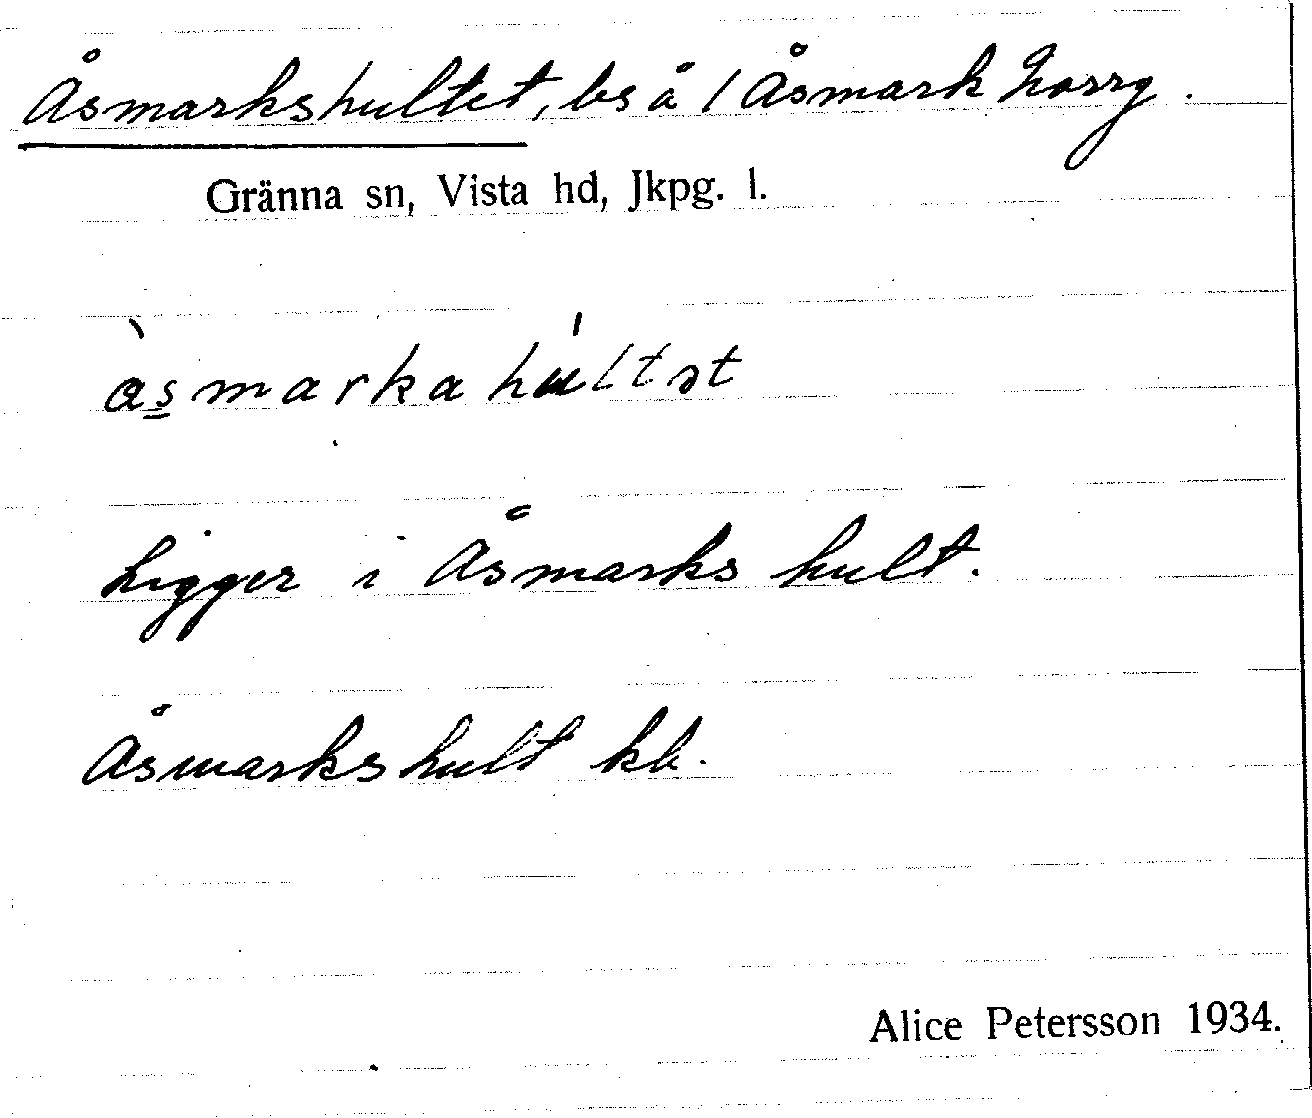 Åsmarkshultet, bs å / Åsmark horrg.
Gränna sn, Vista hd, Jkpg. l.
àsmarkahúltət
Ligger i Åsmarks hult.
Åsmarkshult kb.
Alice Petersson 1934.